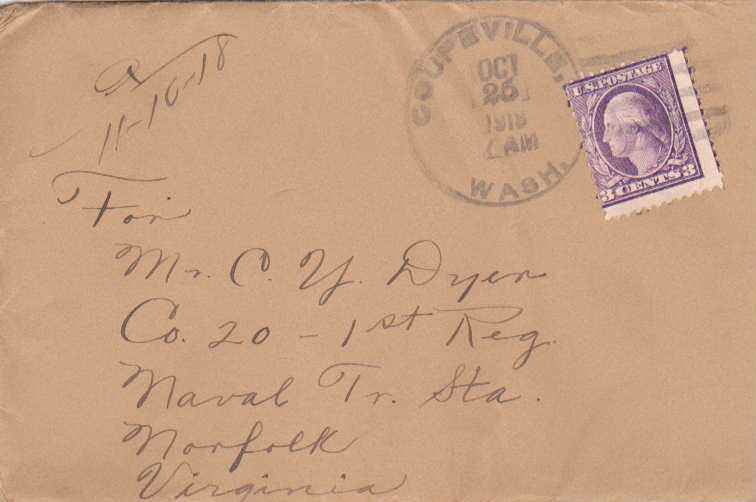 11-10-18
COUPEVILLE,
OCT
25
1918
AM
WASH.
U.S. POSTAGE
3 CENTS 3
For
Mr. C. Y. Dyer
Co. 20 - 1st Reg.
Naval Tr. Sta.
Norfolk
Virginia